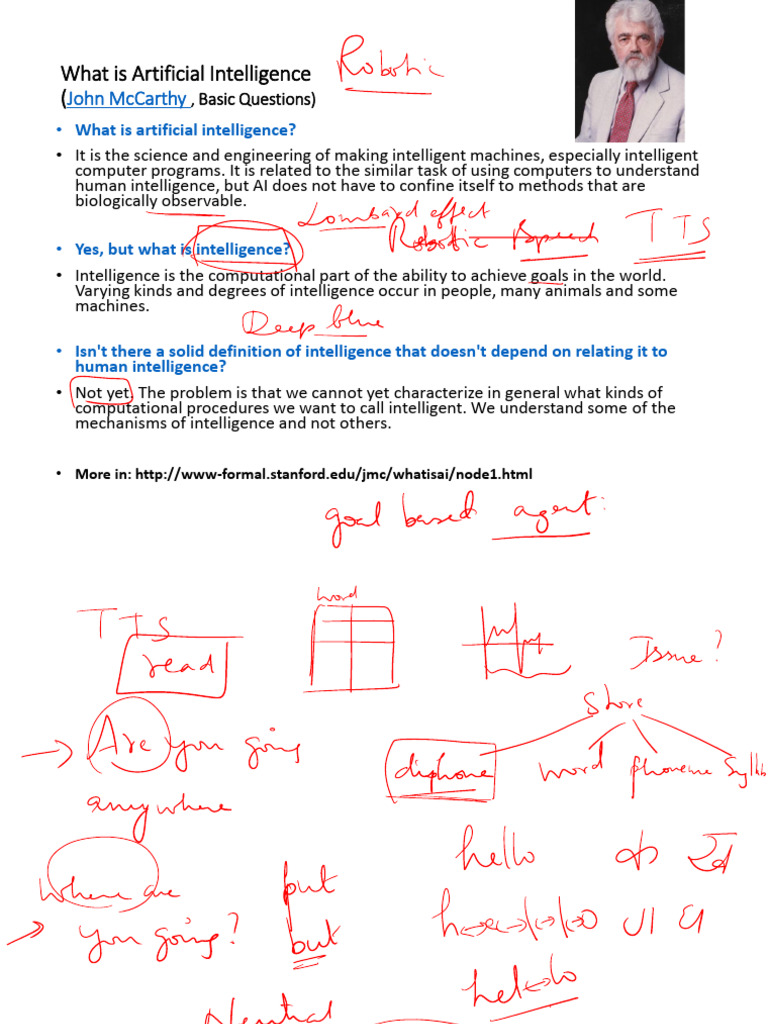 What is Artificial Intelligence
Robotic
(John McCarthy , Basic Questions)
• What is artificial intelligence?
• It is the science and engineering of making intelligent machines, especially intelligent
computer programs. It is related to the similar task of using computers to understand
human intelligence, but AI does not have to confine itself to methods that are
biologically observable.
Lombard effect
Robotic Speech TTS
• Yes, but what is intelligence?
• Intelligence is the computational part of the ability to achieve goals in the world.
Varying kinds and degrees of intelligence occur in people, many animals and some
machines.
Deep blue
• Isn't there a solid definition of intelligence that doesn't depend on relating it to
human intelligence?
• Not yet. The problem is that we cannot yet characterize in general what kinds of
computational procedures we want to call intelligent. We understand some of the
mechanisms of intelligence and not others.
• More in: http://www-formal.stanford.edu/jmc/whatisai/node1.html
goal based agent:
word
TTS
read
Issue?
Store
→ Are you going
anywhere
diphone word phoneme
hello
where are
→ you going?
put
but
Neutral